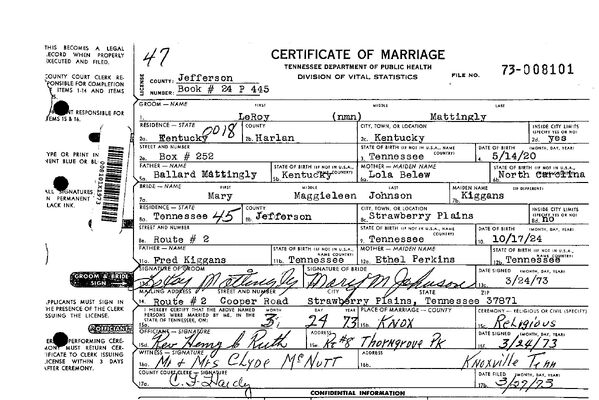 THIS BECOMES A LEGAL
RECORD WHEN PROPERLY
EXECUTED AND FILED.
47
CERTIFICATE OF MARRIAGE
TENNESSEE DEPARTMENT OF PUBLIC HEALTH
DIVISION OF VITAL STATISTICS
FILE NO. 73-008101
COUNTY COURT CLERK RE-
SPONSIBLE FOR COMPLETION
ITEMS 1-14 AND ITEMS
LICENSE
COUNTY: Jefferson
NUMBER: Book # 24 P 445
RESPONSIBLE FOR
ITEMS 15 & 16.
GROOM — NAME FIRST MIDDLE LAST
1. LeRoy (nmn) Mattingly
RESIDENCE — STATE COUNTY CITY, TOWN, OR LOCATION INSIDE CITY LIMITS
(SPECIFY YES OR NO)
2a. Kentucky 0018 2b. Harlan 2c. Kentucky 2d. yes
TYPE OR PRINT IN
STREET AND NUMBER STATE OF BIRTH (IF NOT IN U.S.A., NAME COUNTRY) DATE OF BIRTH (MONTH, DAY, YEAR)
2e. Box # 252 3. Tennessee 4. 5/14/20
FATHER — NAME STATE OF BIRTH (IF NOT IN U.S.A., NAME COUNTRY) MOTHER — MAIDEN NAME STATE OF BIRTH (IF NOT IN U.S.A., NAME COUNTRY)
Ballard Mattingly Kentucky Lola Belew North Carolina
ALL SIGNATURES
IN PERMANENT
BLACK INK.
BRIDE — NAME FIRST MIDDLE LAST MAIDEN NAME (IF DIFFERENT)
7a. Mary Maggieleen Johnson Kiggans
RESIDENCE — STATE COUNTY CITY, TOWN, OR LOCATION INSIDE CITY LIMITS
(SPECIFY YES OR NO)
8a. Tennessee 45 8b. Jefferson 8c. Strawberry Plains 8d. no
STREET AND NUMBER STATE OF BIRTH (IF NOT IN U.S.A., NAME COUNTRY) DATE OF BIRTH (MONTH, DAY, YEAR)
8e. Route # 2 9. Tennessee 10. 10/17/24
FATHER — NAME STATE OF BIRTH (IF NOT IN U.S.A., NAME COUNTRY) MOTHER — MAIDEN NAME STATE OF BIRTH (IF NOT IN U.S.A., NAME COUNTRY)
11a. Fred Kiggans 11b. Tennessee 12a. Ethel Perkins 12b. Tennessee
GROOM & BRIDE
SIGN
SIGNATURE OF GROOM SIGNATURE OF BRIDE DATE SIGNED (MONTH, DAY, YEAR)
LeRoy Mattingly Mary M Johnson 3/24/73
APPLICANTS MUST SIGN IN
THE PRESENCE OF THE CLERK
ISSUING THE LICENSE.
MAILING ADDRESS STREET AND NUMBER CITY STATE ZIP
14. Route # 2 Cooper Road Strawberry Plains, Tennessee 37871
I HEREBY CERTIFY THAT THE ABOVE NAMED
PERSONS WERE MARRIED BY ME, IN THE
STATE OF TENNESSEE, ON:
MONTH DAY YEAR PLACE OF MARRIAGE — COUNTY CEREMONY — RELIGIOUS OR CIVIL (SPECIFY)
3 24 73 Knox 15c. Religious
OFFICIANT
PERFORMING CERE-
MONY MUST RETURN CER-
TIFICATE TO CLERK ISSUING
LICENSE WITHIN 3 DAYS
AFTER CEREMONY.
OFFICIANT — SIGNATURE ADDRESS DATE SIGNED (MONTH, DAY, YEAR)
15d. Rev Henry C Ruth 15e. Rt #8 Thorngrove Pk 15f. 3/24/73
WITNESS — SIGNATURE ADDRESS
16a. Mr & Mrs Clyde McNutt 16b. Knoxville Tenn
COUNTY COURT CLERK — SIGNATURE DATE FILED (MONTH, DAY, YEAR)
17a. 17b. 3/27/73
CONFIDENTIAL INFORMATION